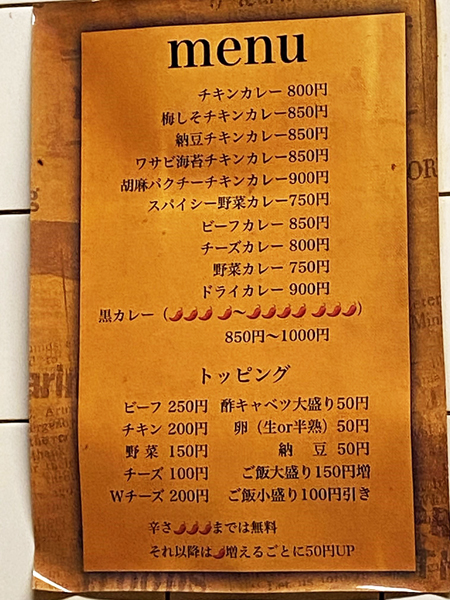 menu
チキンカレー 800円
梅しそチキンカレー850円
納豆チキンカレー850円
ワサビ海苔チキンカレー850円
胡麻パクチーチキンカレー900円
スパイシー野菜カレー750円
ビーフカレー 850円
チーズカレー 800円
野菜カレー 750円
ドライカレー 900円
黒カレー（🌶🌶🌶🌶～🌶🌶🌶🌶🌶🌶🌶）
850円～1000円
トッピング
ビーフ 250円 酢キャベツ大盛り50円
チキン 200円 卵（生or半熟）50円
野 菜 150円 納 豆 50円
チーズ 100円 ご飯大盛り150円増
Wチーズ 200円 ご飯小盛り100円引き
辛さ🌶🌶🌶までは無料
それ以降は🌶増えるごとに50円UP